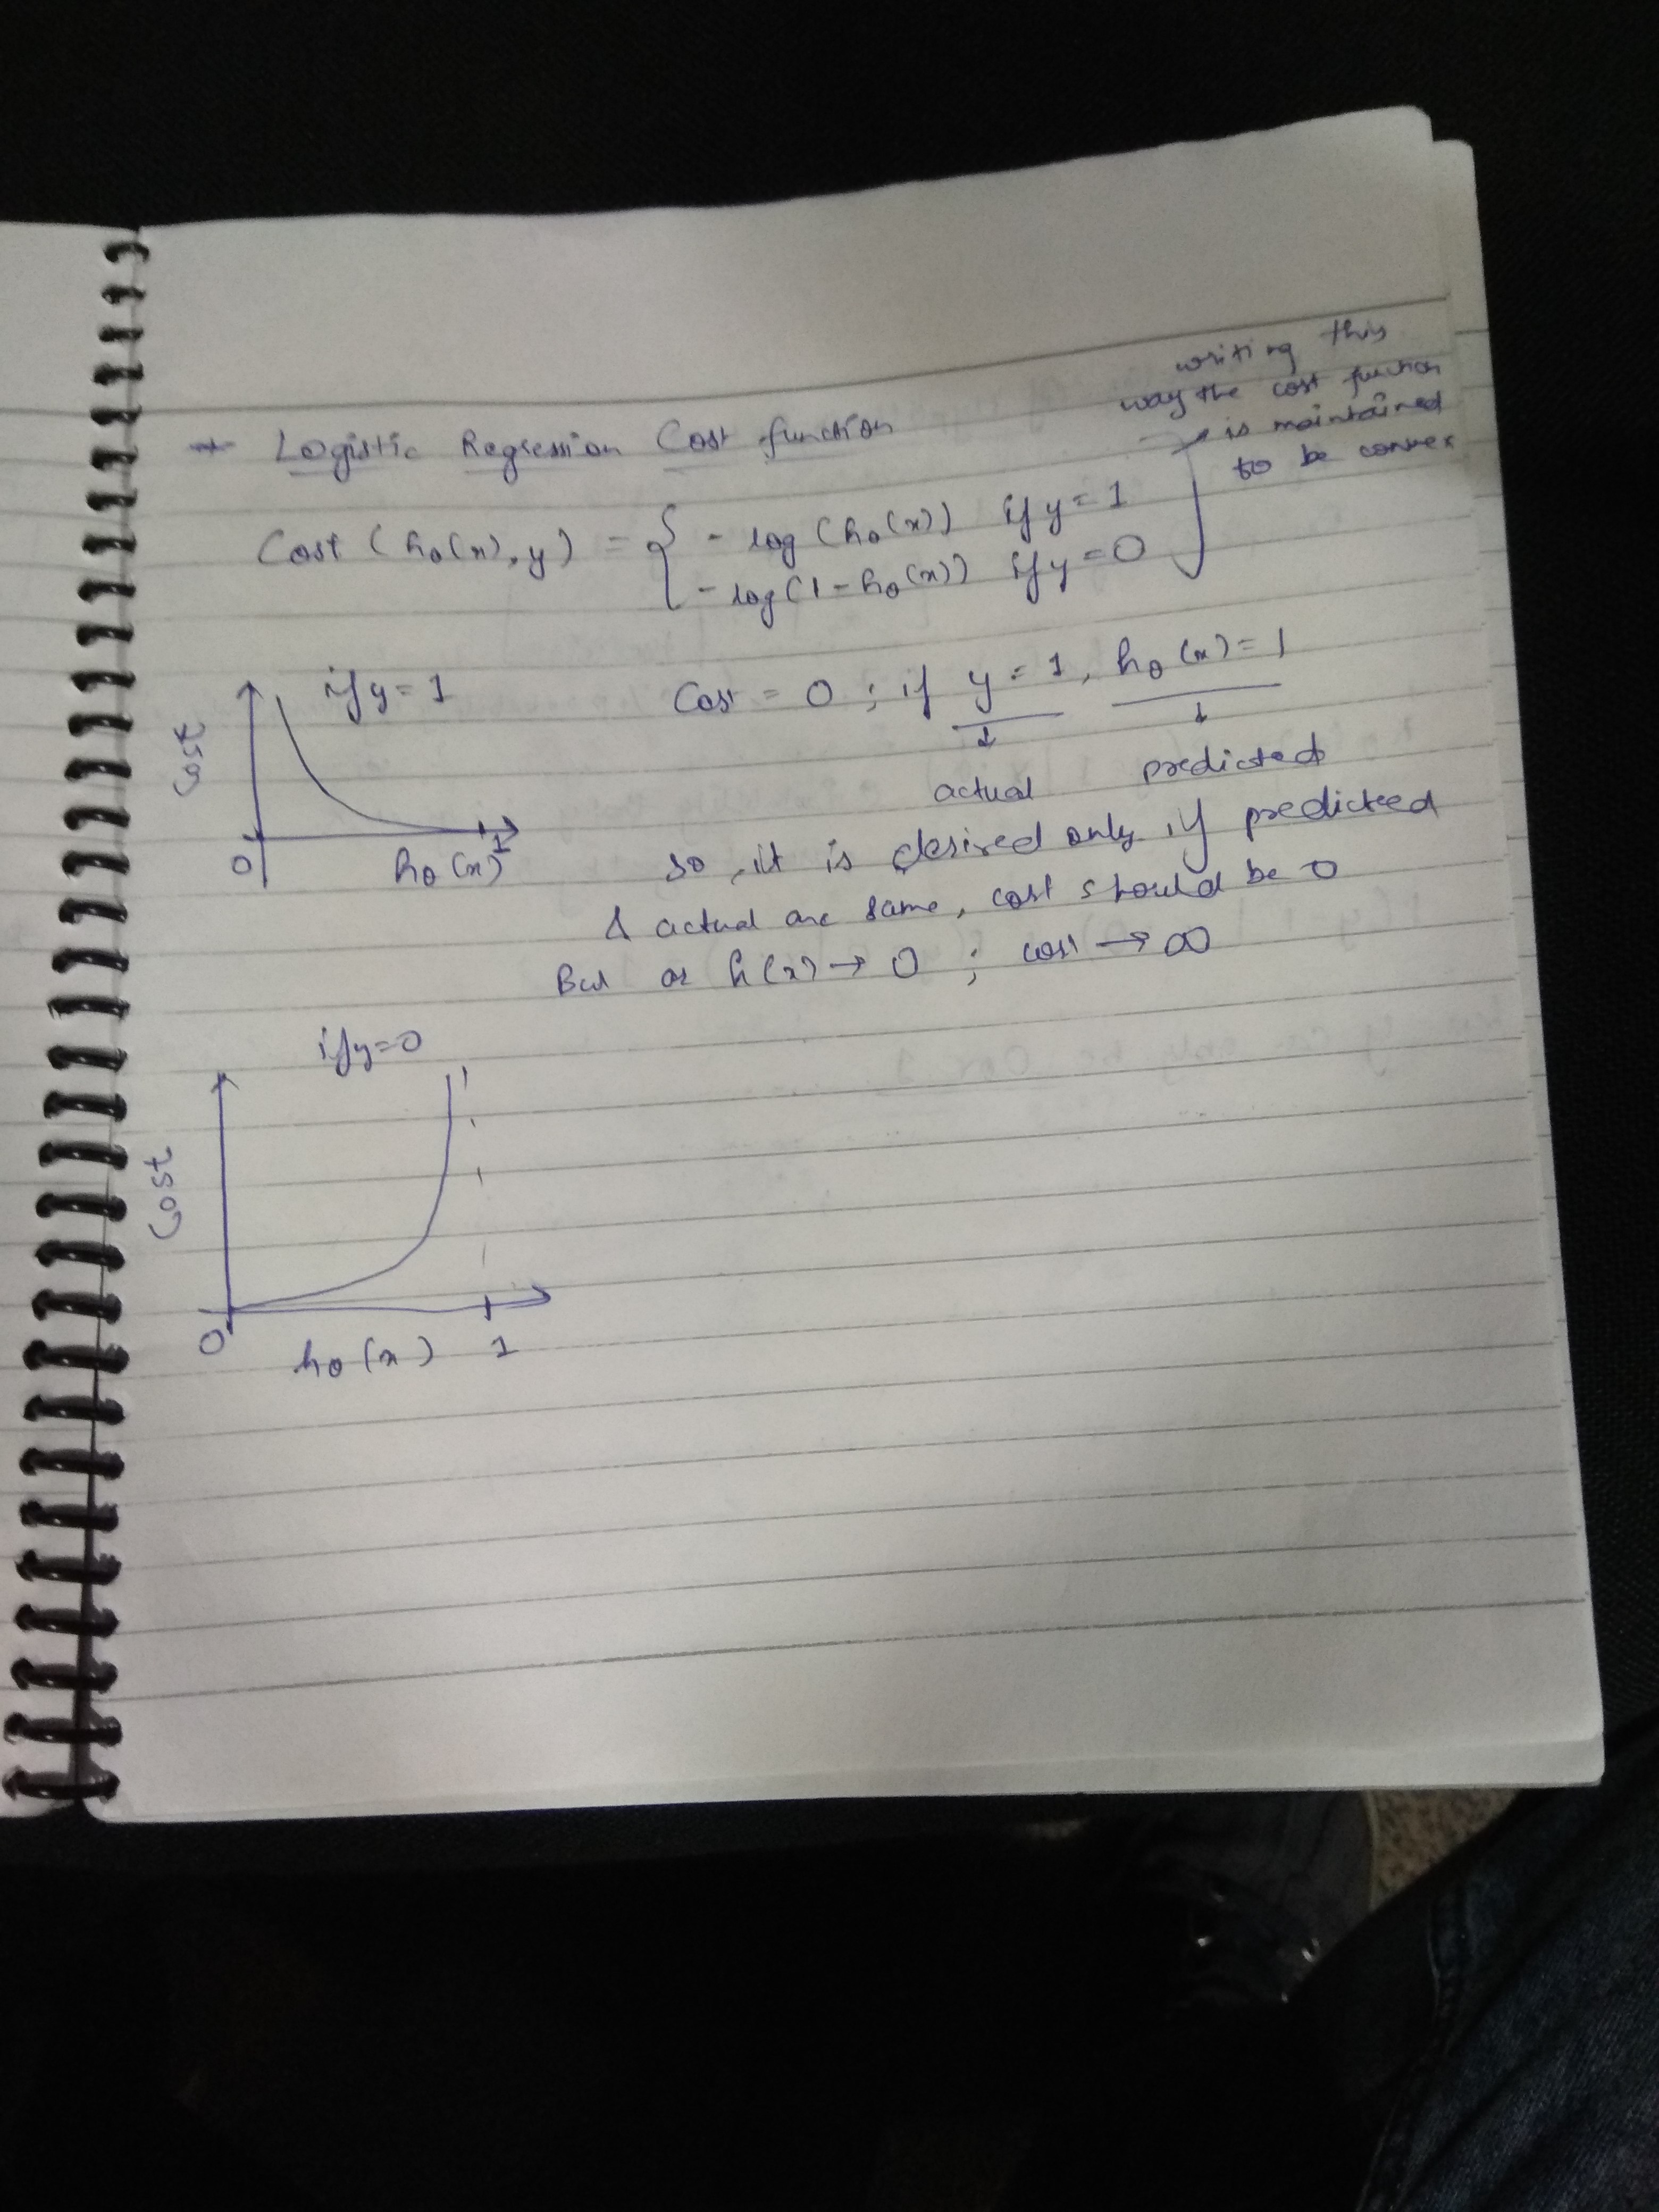 → Logistic Regression Cost function
writing this
way the cost function
is maintained
to be convex
Cost (hθ(x), y) = { - log (hθ(x)) if y = 1
- log (1 - hθ(x)) if y = 0
if y = 1
Cost
0
hθ(x)
1
Cost = 0 ; if y = 1, hθ(x) = 1
↓ ↓
actual predicted
so, it is desired only if predicted
& actual are same, cost should be 0
But as h(x) → 0 ; cost → ∞
if y = 0
Cost
0
hθ(x) 1